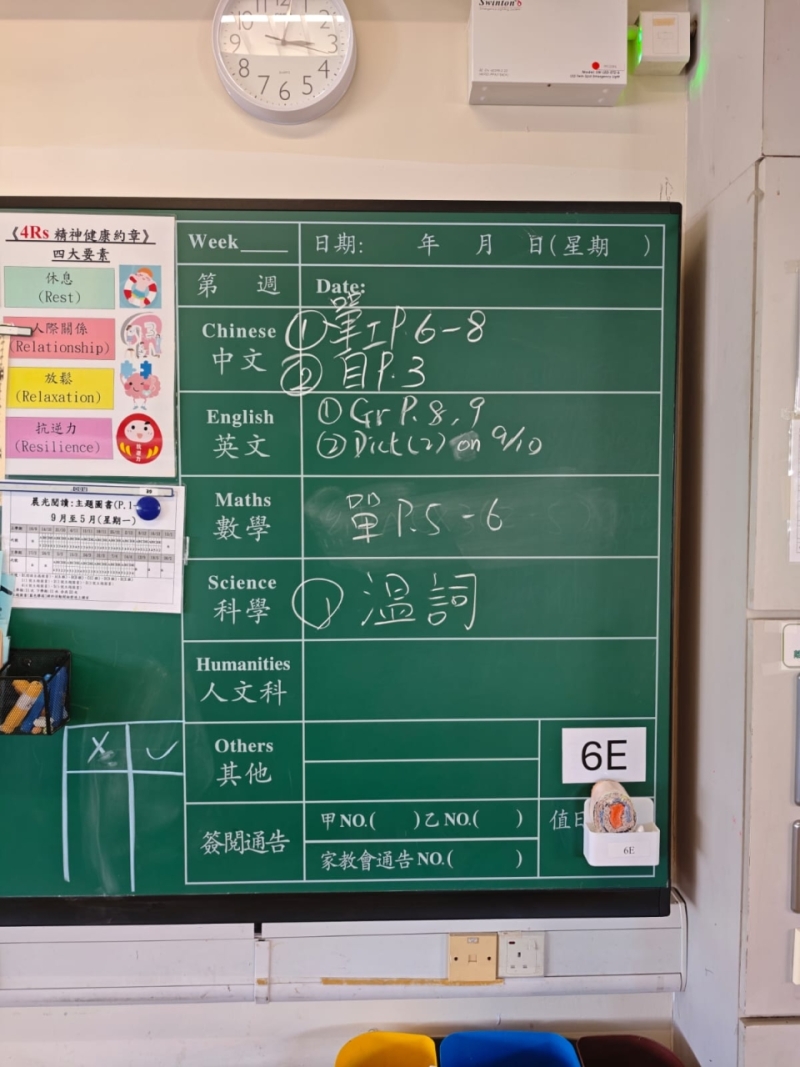 12
1
2
3
4
5
6
7
8
9
10
Swinton's
《4Rs 精神健康約章》
四大要素
休息
(Rest)
人際關係
(Relationship)
放鬆
(Relaxation)
抗逆力
(Resilience)
晨光閱讀:主題圖書(P.1-
9月至5月(星期一)
X ✓
Week____ 日期: 年 月 日(星期 )
第 週 Date:
Chinese 中文
① 單工P.6-8
② 自P.3
English 英文
① Gr P.8,9
② Dict(2) on 9/10
Maths 數學
單P.5-6
Science 科學
① 溫詞
Humanities
人文科
Others
其他
6E
簽閱通告
甲NO.( )乙NO.( )
家教會通告NO.( )
值日
6E